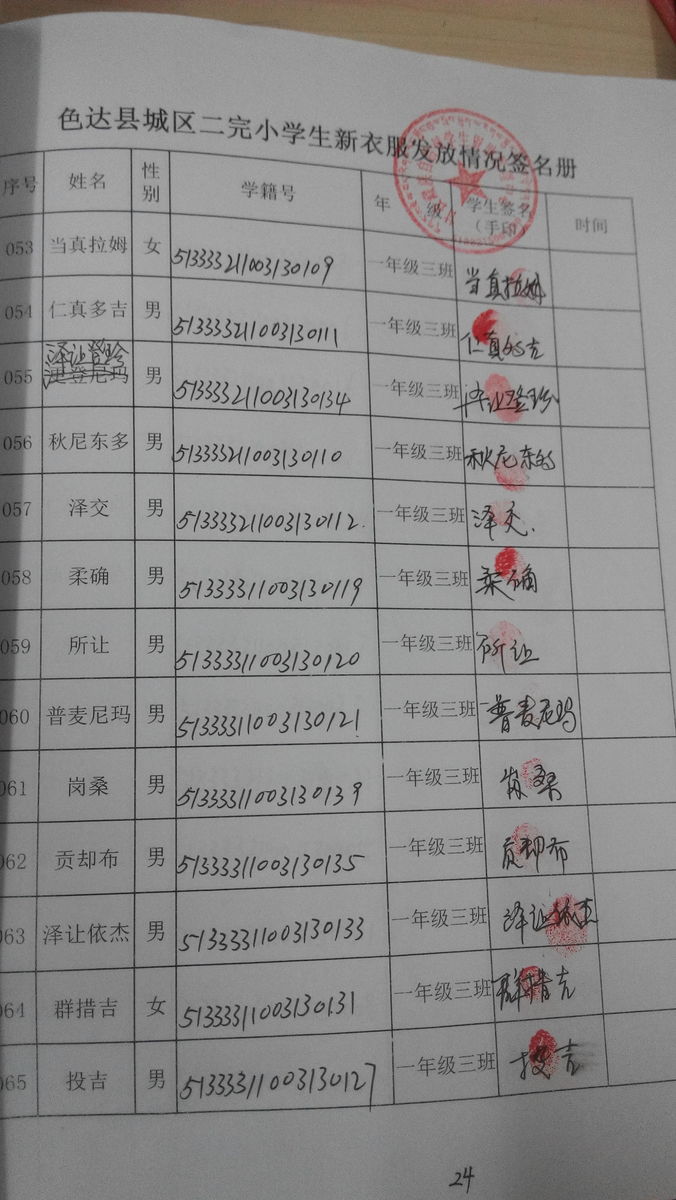 色达县城区二完小学生新衣服发放情况签名册
序号 姓名 性别 学籍号 年 级 学生签名（手印） 时间
053 当真拉姆 女 513333211003130109 一年级三班 当真拉姆
054 仁真多吉 男 513333211003130111 一年级三班 仁真多吉
泽让登珍
055 男 513333211003130134 一年级三班 泽让登珍
056 秋尼东多 男 513333211003130110 一年级三班 秋尼东多
057 泽交 男 513333211003130112. 一年级三班 泽交.
058 柔确 男 51333311003130119 一年级三班 柔确
059 所让 男 51333311003130120 一年级三班 所让
060 普麦尼玛 男 51333311003130121 一年级三班 普麦尼玛
061 岗桑 男 51333311003130139 一年级三班 岗桑
062 贡却布 男 51333311003130135 一年级三班 贡却布
063 泽让依杰 男 51333311003130133 一年级三班 泽让依杰
064 群措吉 女 51333311003130131 一年级三班 群措吉
065 投吉 男 51333311003130127 一年级三班 投吉
24